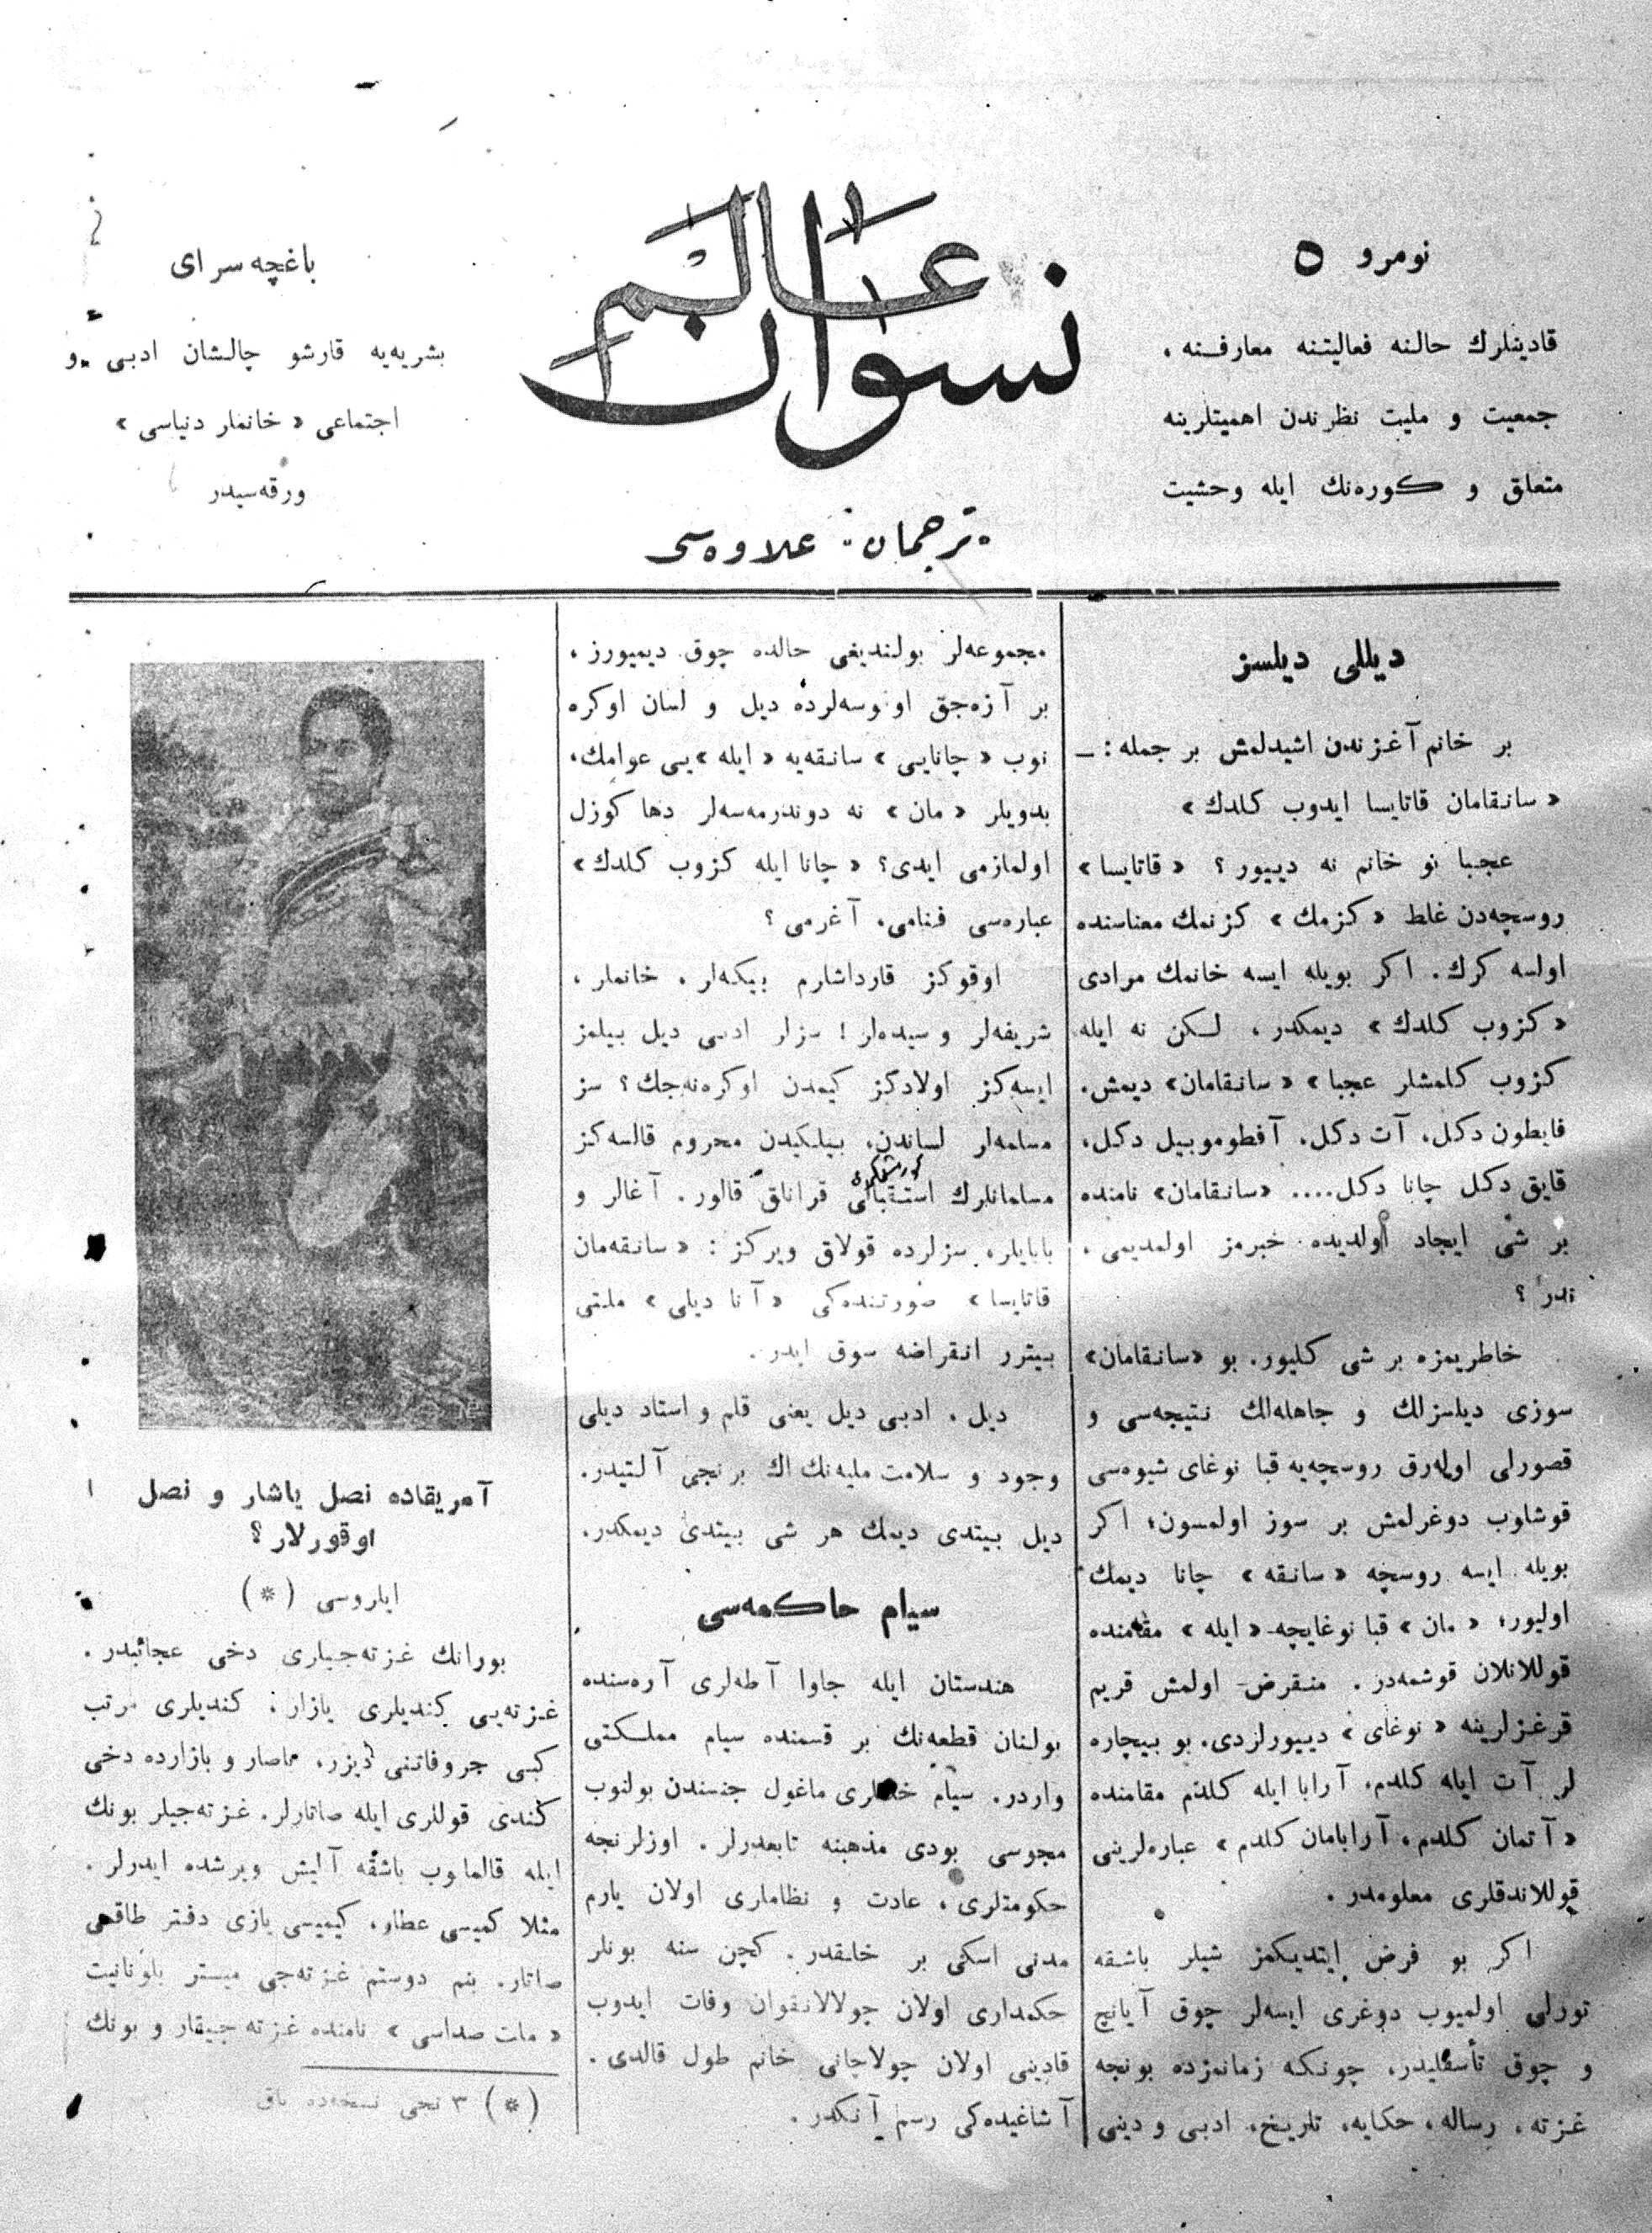 نومرو ٥
قادینلرك حالنه فعالیتنه معارفنه ،
جمعیت و ملیت نظرندن اهمیتلرینه
متعلق و كوره‌نك ایله وحشیت
عالم نسوان
ترجمان علاوه‌سی
باغچه سرای
بشریه‌یه قارشو چالشان ادبی و
اجتماعی « خانملر دنیاسی »
ورقه‌سیدر
دیللی دیلسز
بر خانم آغزندن اشیدلمش بر جمله : ـ
« سانقامان قاتایسا ایدوب كلدك »
عجبا نو خانم نه دییور ؟ « قاتایسا »
روسچه‌دن غلط « كزمك » كزنمك معناسنده
اولسه كرك . اكر بویله ایسه خانمك مرادی
« كزوب كلدك » دیمكدر ، لكن نه ایله
كزوب كلمشلر عجبا » « سانقامان» دیمش .
فایطون دكل ، آت دكل ، آفطوموبیل دكل ،
قایق دكل چانا دكل .... «سانقامان» نامنده
بر شی ایجاد اولدیده خبرمز اولمدیمی ،
ندر ؟
خاطریمزه بر شی كلیور . بو «سانقامان»
سوزی دیلسزلك و جاهله‌لك نتیجه‌سی و
قصورلی اوله‌رق روسچه‌یه قبا نوغای شیوه‌سی
قوشاوب دوغرلمش بر سوز اولمسون ؛ اكر
بویله ایسه روسچه « سانقه » چانا دیمك
اولیور ؛ « مان » قبا نوغایچه « ایله » مقامنده
قوللانلان قوشمه‌در . منقرض اولمش قریم
قرغزلرینه « نوغای » دییورلزدی . بو بیچاره
لر آت ایله كلدم ، آرابا ایله كلدم مقامنده
« آتمان كلدم ، آرابامان كلدم » عباره‌لرینی
قوللاندقلری معلومدر .
اكر بو فرض ایتدیكمز شیلر باشقه
تورلی اولمیوب دوغری ایسه‌لر چوق آیانچ
و چوق تأسفلیدر ، چونكه زمانمزده بونجه
غزته ، رساله ، حكایه ، تاریخ ، ادبی و دینی
مجموعه‌لر بولندیغی حالده چوق دیمیورز ،
بر آزه‌جق اونوسه‌لرده دیل و لسان اوكره
نوب « چانایی » سانقه‌یه « ایله »یی عوامك ،
بدویلر « مان » نه دوندرمه‌سه‌لر دها كوزل
اولمازمی ایدی ؟ « چانا ایله كزوب كلدك »
عباره‌سی فنامی ، آغرمی ؟
اوقوكز قارداشارم بیكه‌لر ، خانملر ،
شریفه‌لر و سیده‌لر ! سزلر ادبی دیل بیلمز
ایسه‌كز اولادكز كیمدن اوكره‌نه‌جك ؟ سز
مسلمه‌لر لساندن ، بیلكیدن محروم قالسه‌كز
مسلمانلرك استقبالی قراناق قالور . آغالر و
بابایلر ، سزلرده قولاق ویركز : « سانقه‌مان
قاتایسا » صورتنده‌كی « آنا دیلی » ملتی
بیترر انقراضه سوق ایدر .
دیل ، ادبی دیل یعنی قلم و استاد دیلی
وجود و سلامت ملیه‌نك اك برنجی آلتیدر .
دیل بیتدی دیمك هر شی بیتدی دیمكدر .
سیام حاكمه‌سی
هندستان ایله جاوا آطه‌لری آره‌سنده
بولنان قطعه‌نك بر قسمنده سیام مملكتی
واردر . سیام خلقلری ماغول جنسندن بولنوب
مجوسی بودی مذهبنه تابعدرلر . اوزلرنجه
حكومتلری ، عادت و نظاملری اولان یارم
مدنی اسكی بر خلقدر . كچن سنه بونلر
حكمداری اولان چولالانقوان وفات ایدوب
قادینی اولان چولاچانی خانم طول قالدی .
آشاغیده‌كی رسم آنكدر .
آمریقاده نصل یاشار و نصل
اوقورلار ؟
ایلروسی ( * )
بورانك غزته‌جیلری دخی عجائبدر .
غزته‌یی كندیلری یازار ، كندیلری مرتب
كبی حروفاتنی دیزر ، باصار و بازارده دخی
كندی قوللری ایله صاتارلر . غزته‌جیلر بونك
ایله قالماوب باشقه آلیش ویرشده ایدرلر .
مثلا كمیسی عطار ، كیمیسی یازی دفتر طاقمی
صاتار . بنم دوستم غزته‌جی میستر بلونانیت
« ملت صداسی » نامنده غزته چیقار و بونك
( * ) ٣ نجی نسخه‌ده باق